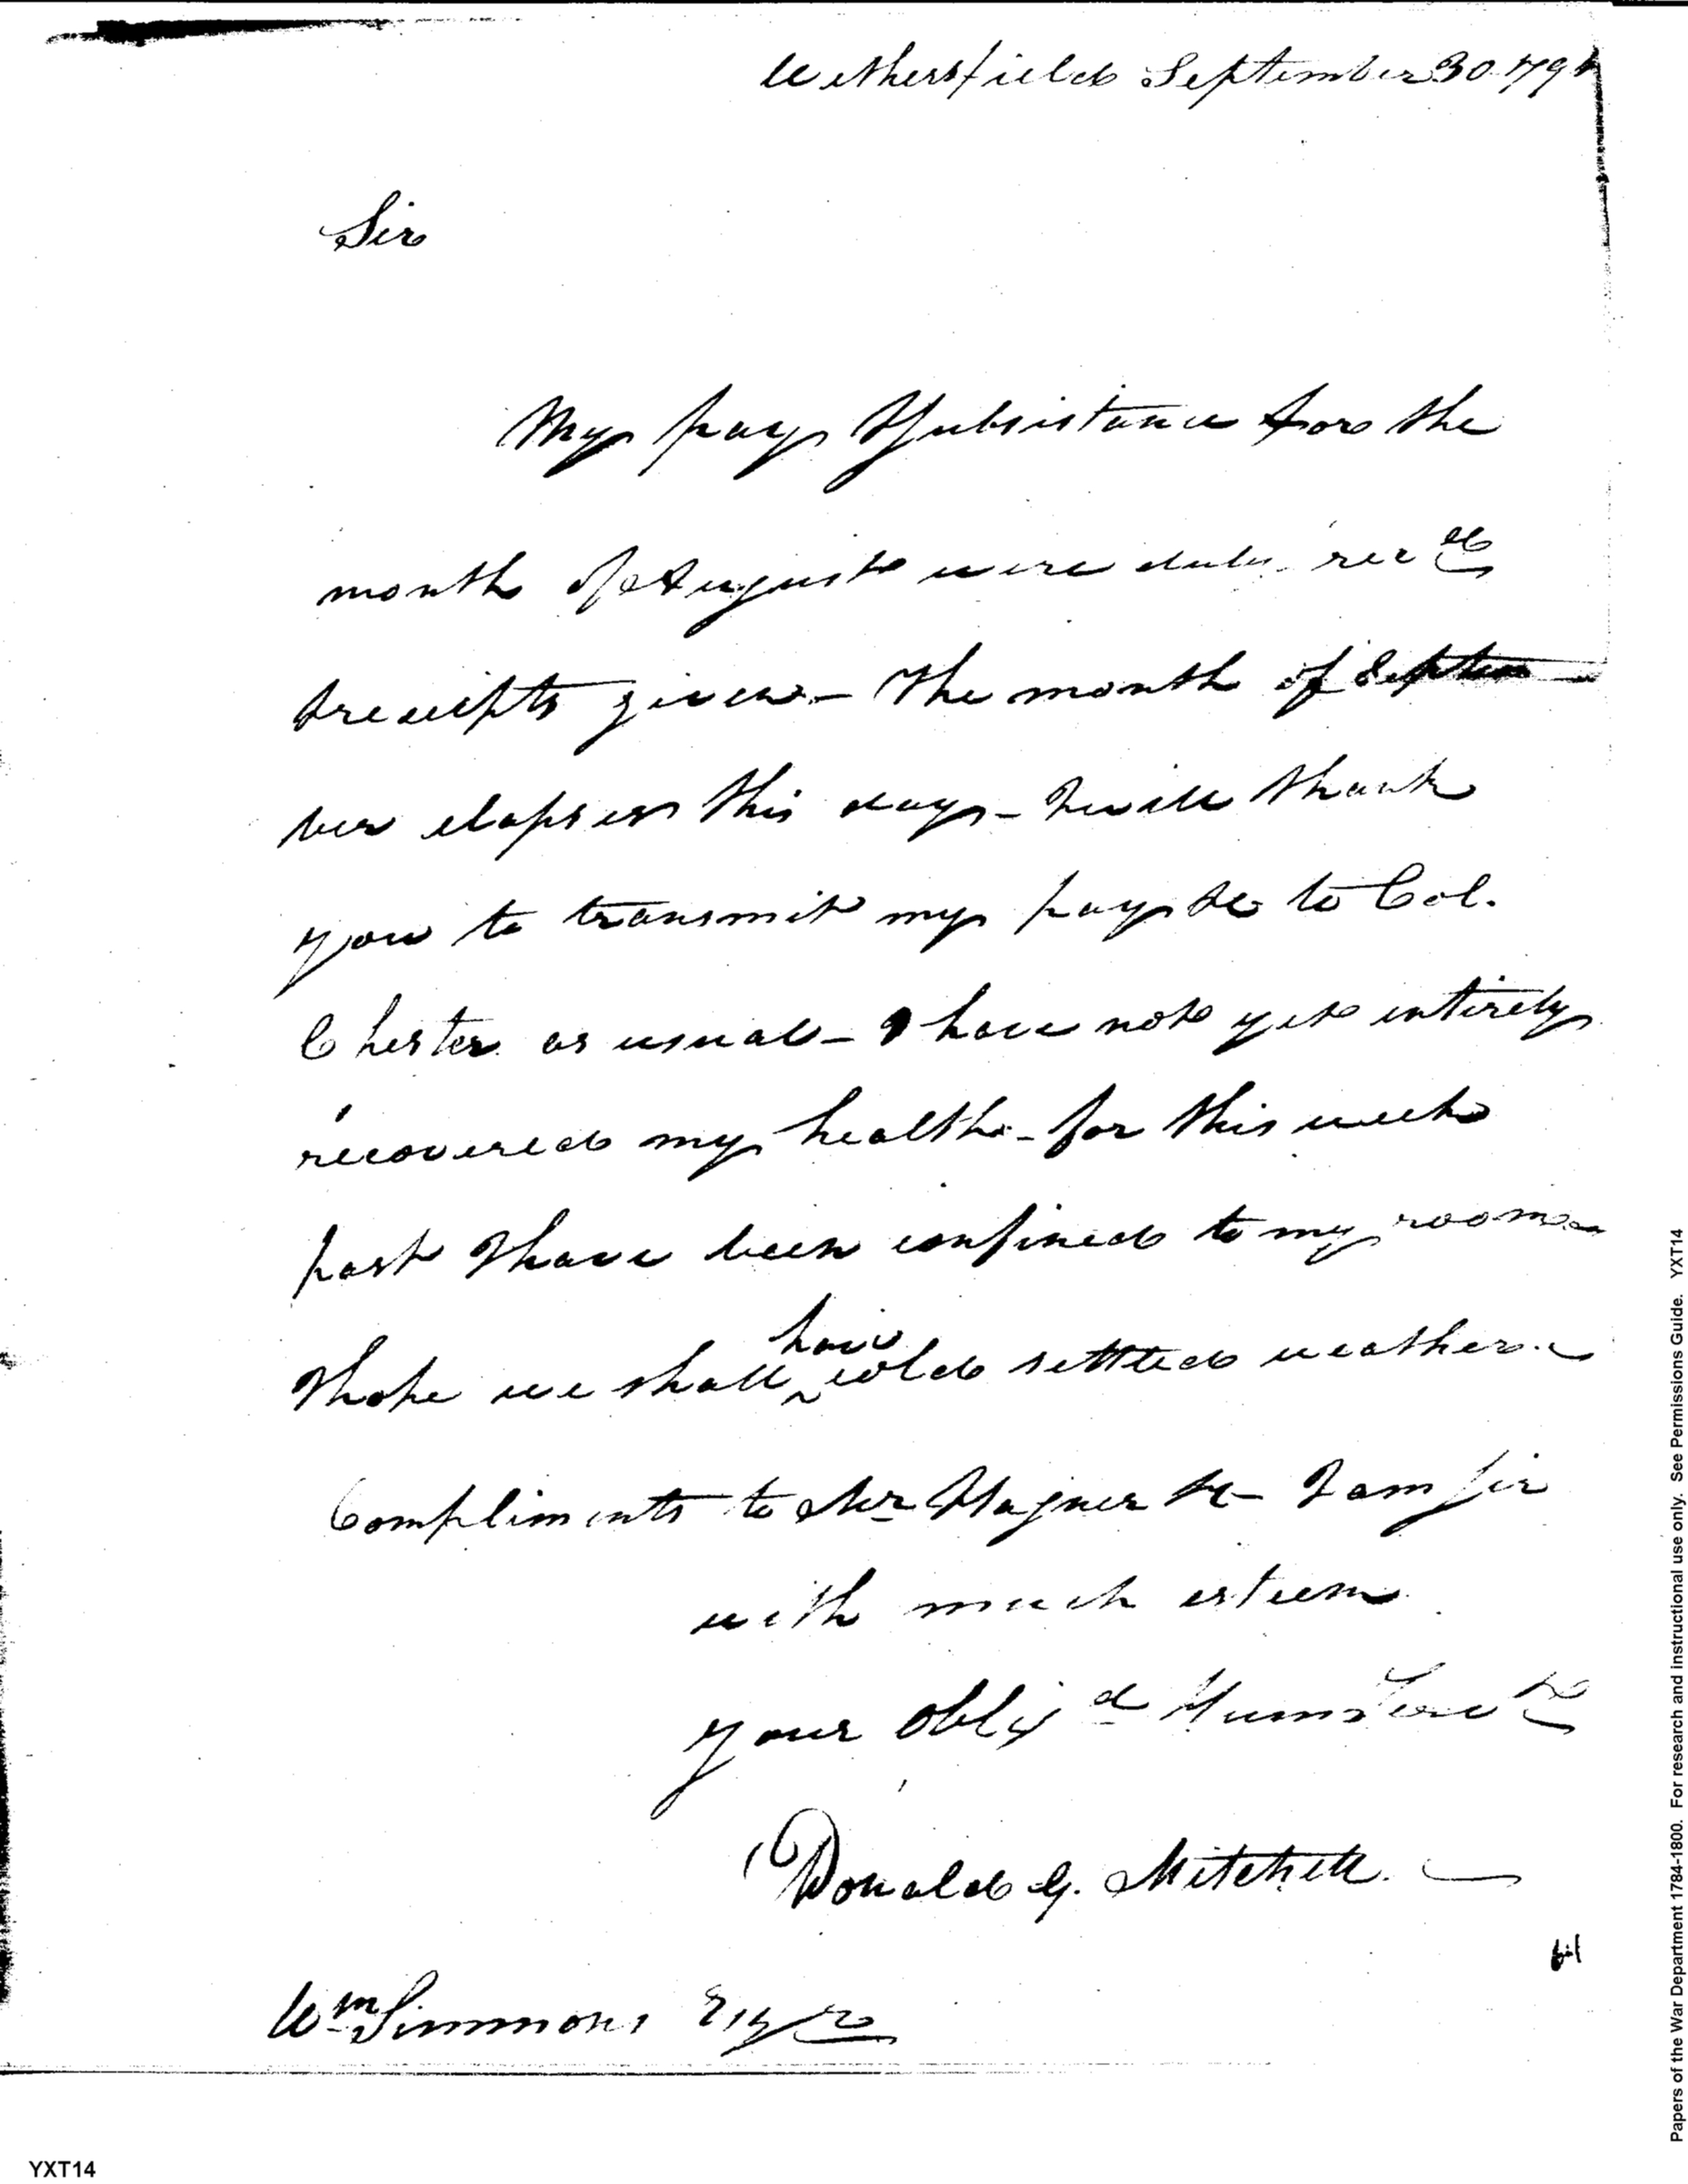 Wethersfield September 30 179
Sir
My pay & Subsistance for the
month of August were duly rec.d
& receipts given — The month of Septem
ber elapses this day — I will thank
you to transmit my pay &c to Col.
Chester as usual — I have not yet entirely
recovered my health — for this week
past I have been confined to my room —
have
I hope we shall ^ cold settled weather. —
Compliments to Mr Wagner &c — I am Sir
with much esteem
your Oblig.d Hum Serv.t
Donald G. Mitchell. —
Wm Simmons Esqr
Papers of the War Department 1784-1800. For research and instructional use only. See Permissions Guide. YXT14
YXT14